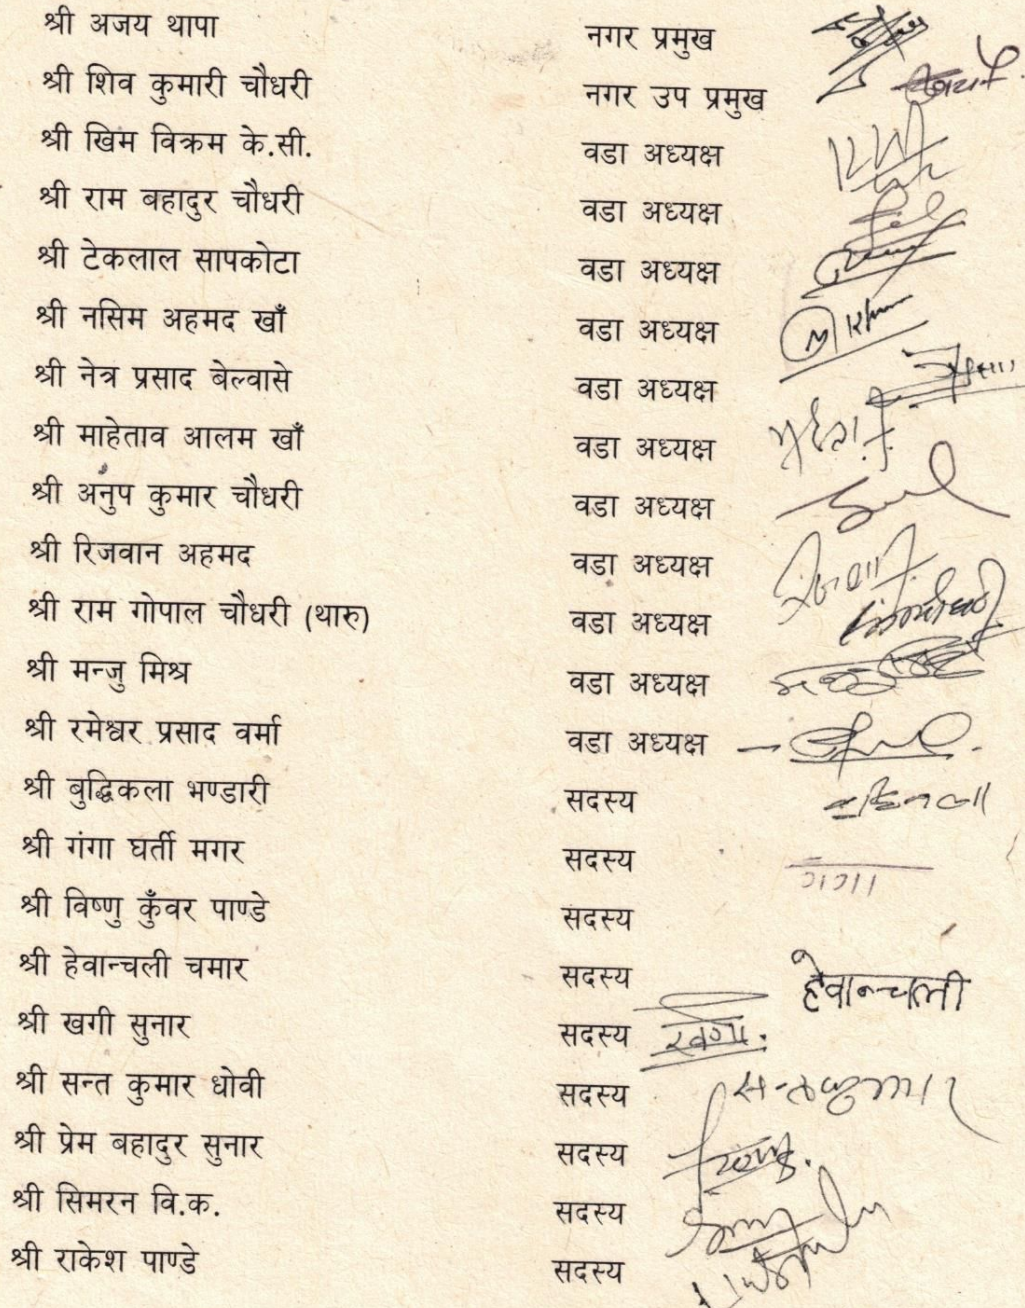 श्री अजय थापा नगर प्रमुख
श्री शिव कुमारी चौधरी नगर उप प्रमुख
श्री खिम विक्रम के.सी. वडा अध्यक्ष
श्री राम बहादुर चौधरी वडा अध्यक्ष
श्री टेकलाल सापकोटा वडा अध्यक्ष
श्री नसिम अहमद खाँ वडा अध्यक्ष
श्री नेत्र प्रसाद बेल्वासे वडा अध्यक्ष
श्री माहेताव आलम खाँ वडा अध्यक्ष
श्री अनुप कुमार चौधरी वडा अध्यक्ष
श्री रिजवान अहमद वडा अध्यक्ष
श्री राम गोपाल चौधरी (थारु) वडा अध्यक्ष
श्री मन्जु मिश्र वडा अध्यक्ष
श्री रमेश्वर प्रसाद वर्मा वडा अध्यक्ष
श्री बुद्धिकला भण्डारी सदस्य
श्री गंगा घर्ती मगर सदस्य गंगा
श्री विष्णु कुँवर पाण्डे सदस्य
श्री हेवान्चली चमार सदस्य हेवान्चली
श्री खगी सुनार सदस्य
श्री सन्त कुमार धोवी सदस्य सन्तकुमार
श्री प्रेम बहादुर सुनार सदस्य
श्री सिमरन वि.क. सदस्य
श्री राकेश पाण्डे सदस्य